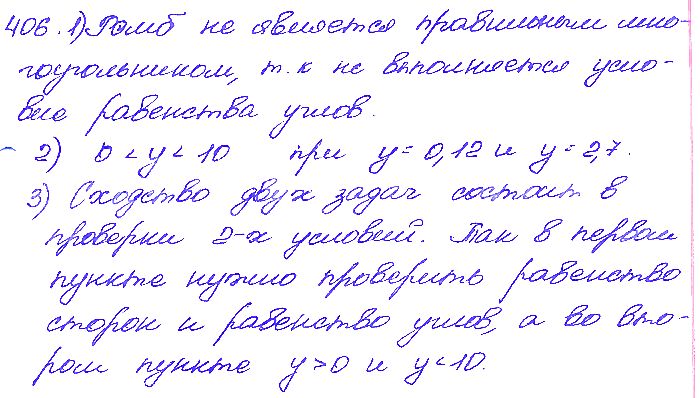 406. 1) Ромб не является правильным мно-
гоугольником, т.к не выполняется усло-
вие равенства углов.
2) 0 < y < 10 при y = 0,12 и y = 2,7.
3) Сходство двух задач состоит в
проверки 2-х условий. Так в первом
пункте нужно проверить равенство
сторон и равенство углов, а во вто-
ром пункте y > 0 и y < 10.